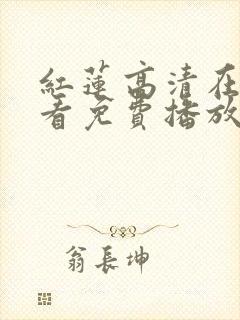 紅蓮高清在
看免費播放
翁長坤